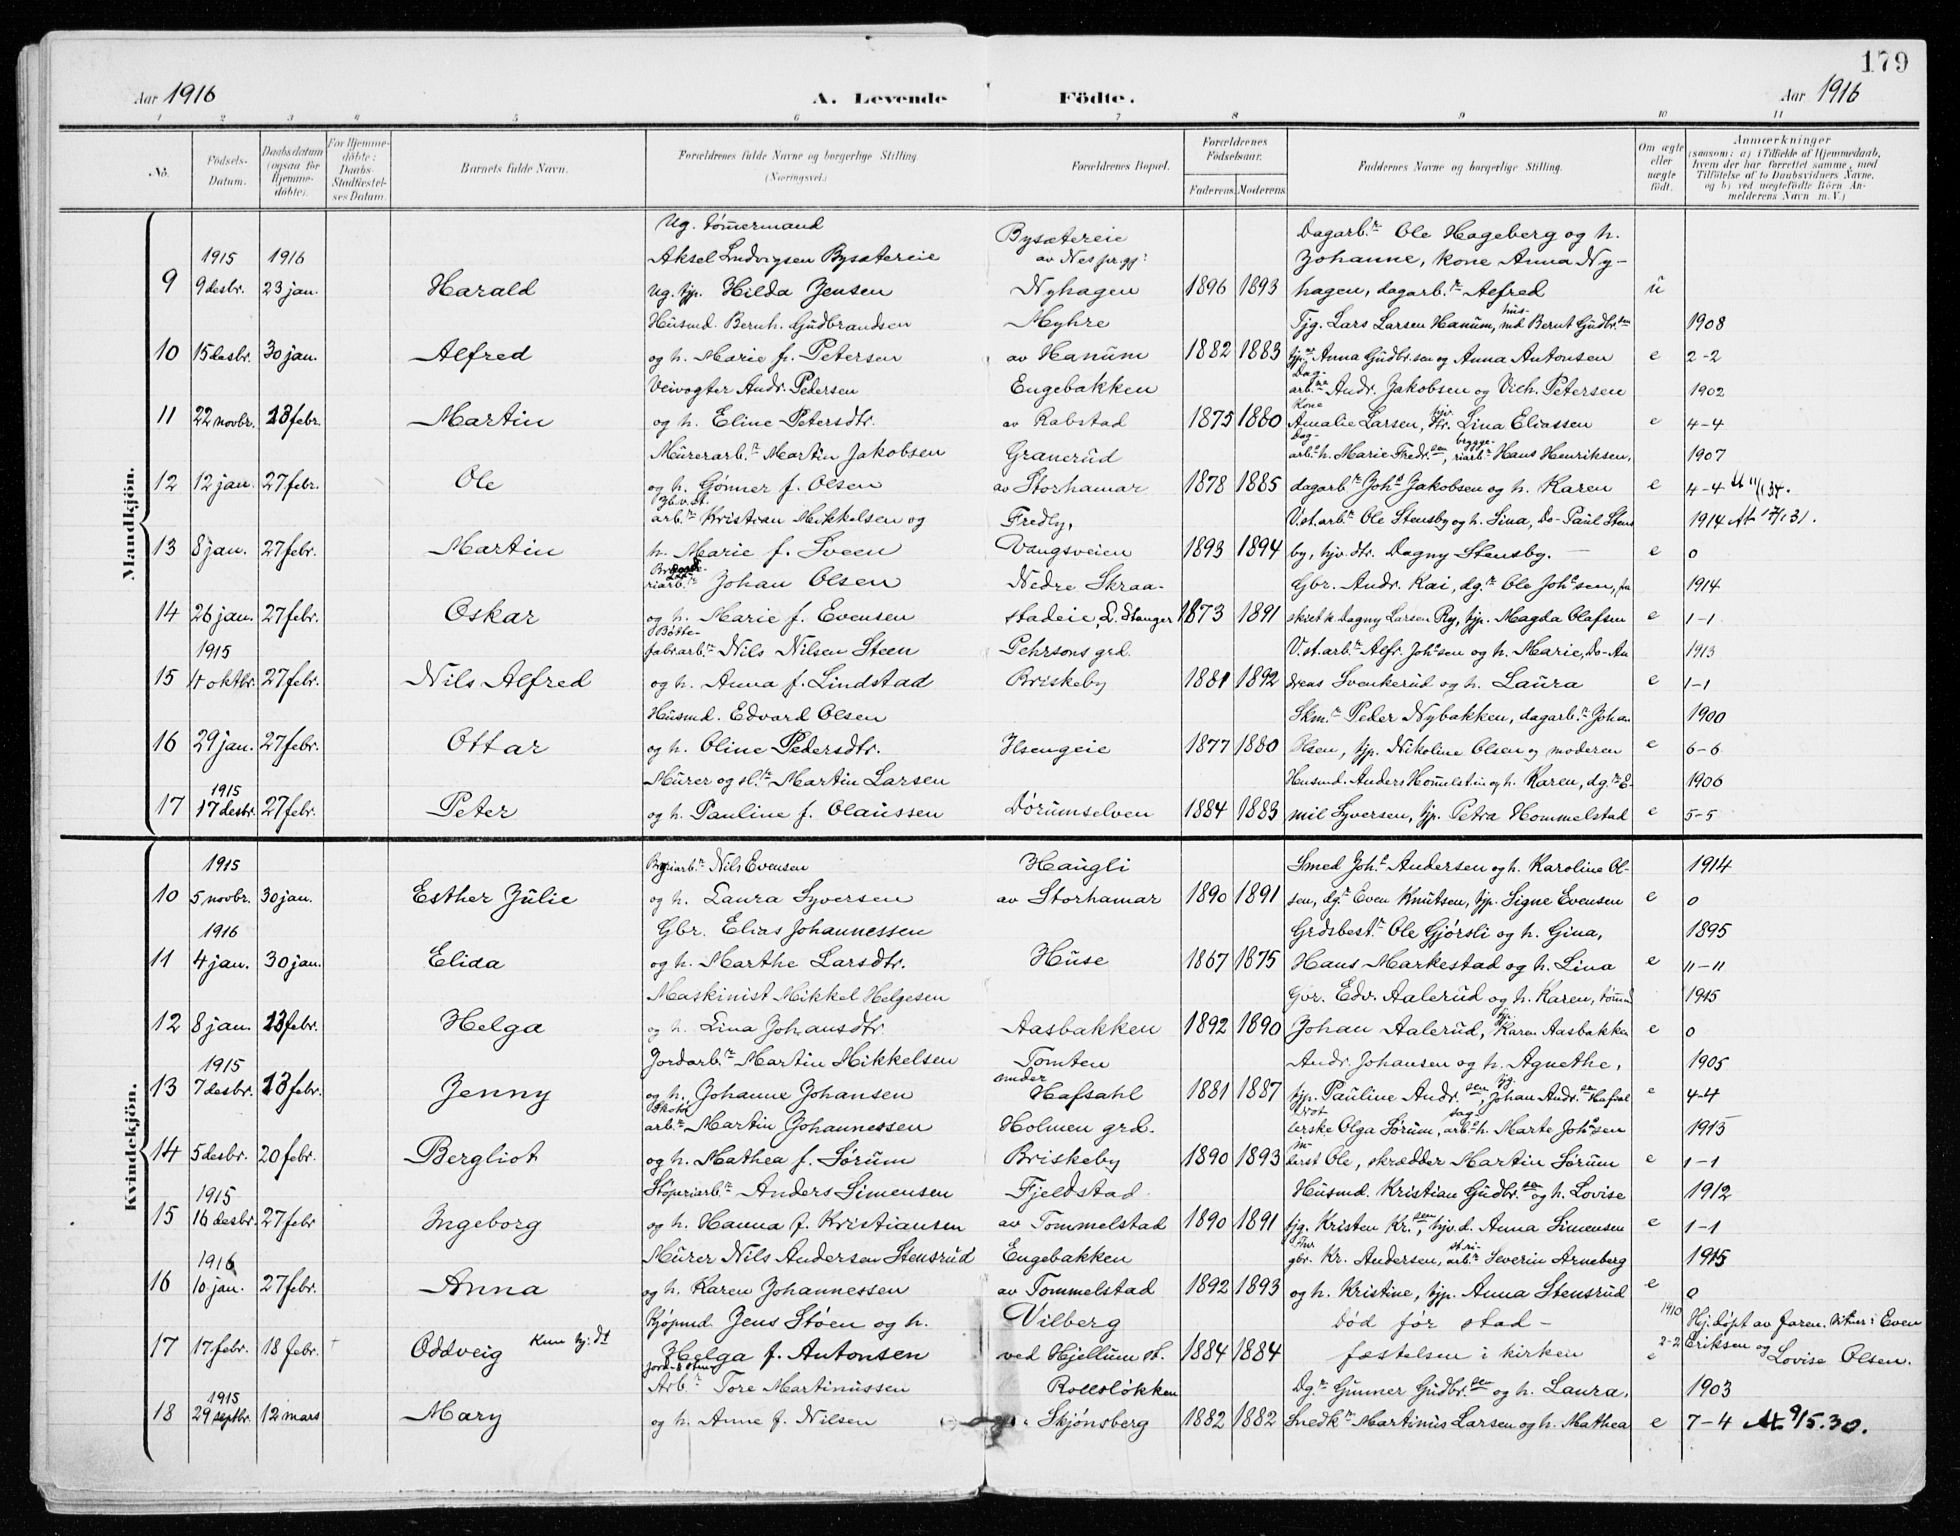 179
Aar 1916 A. Levende Födte. Aar 1916
1 2 3 4 5 6 7 8 9 10 11
No. Födsels-Datum. Daabsdatum (ogsaa for Hjemme-döbte). For Hjemme-döbte: Daabs-Stadfæstel-ses Datum. Barnets fulde Navn. Forældrenes fulde Navne og borgerlige Stilling (Næringsvei.) Forældrenes Bopæl. Forældrenes Födselsaar. Faderens. Moderens. Faddernes Navne og borgerlige Stilling. Om ægte eller uægte født. Anmerkninger (saasom: a) i Tilfælde af Hjemmedaab, hvem der har forrettet samme, med Tilföielse af to Daabsvidners Navne, og b) ved uægtefödte Börn An-melderens Navn m. V.)
Mandkjön.
Ug. tømmermand Bysætereie Dagarb.r Ole Hageberg og h.
1915 1916 Aksel Ludvigsen Bysætereie av Nes pr.gj: Johanne, kone Anna Ny-
9 9 desbr. 23 jan. Harald ug. tjp. Hilda Jensen Nyhagen 1896 1893 hagen, dagarb.r Alfred u
Husmd. Bernh. Gudbrandsen Myhre Tjg. Lars Larsen Hanum, husmd. Bernt Gudbr.sen 1908
10 15 desbr. 30 jan. Alfred og h. Marie f. Petersen av Hanum 1882 1883 tjp. Anna Gudbr.sen og Anna Antonsen e 2-2
Veivogter Andr. Pedersen Engebakken Dagarb.ne Andr. Jakobsen og Vilh. Petersen 1902
11 22 novbr. 13 febr. Martin og h. Eline Petersdtr. av Rabstad 1875 1880 kone Amalie Larsen, hjv. dtr. Lina Eliassen e 4-4
Murerarb.r Martin Jakobsen Granerud Dagarb. h. Marie Fredr.sen, bryggeriarb.r Hans Henriksen, 1907
12 12 jan. 27 febr. Ole og h. Gønner f. Olsen av Storhamar 1878 1885 dagarb.r Joh.s Jakobsen og h. Karen e 4-4 At 11/1 34.
Jb.v.st. arb.r Kristian Mikkelsen og Fredly, V.st.arb.r Ole Stensby og h. Lina, Do- Paul Stens 1914 At 17/1 31.
13 8 jan. 27 febr. Martin h. Marie f. Sveen Vangsveien 1893 1894 by, hjv. dtr. Dagny Stensby. e 0
riarb.r Johan Olsen Nedre Skraa- Gbr. Andr. Kai, dg.r Ole Joh.sen, 1914
14 26 jan. 27 febr. Oskar og h. Marie f. Evensen stadeie, L. Stanger 1873 1891 Dagny Larsen Ry, tjp. Magda Olafsen e 1-1
1915 Bøttefabr.arb.r Nils Nilsen Steen Pehrsons grd. V.st.arb.r Alfr. Joh.sen og h. Marie, Do- An 1913
15 4 oktbr. 27 febr. Nils Alfred og h. Anna f. Lindstad Briskeby 1881 1892 dreas Svenkerud og h. Laura e 1-1
Husmd. Edvard Olsen Skm.r Peder Nybakken, dagarb.r Johan 1900
16 29 jan. 27 febr. Ottar og h. Oline Pedersdtr. Ilsengeie 1877 1880 Olsen, tjp. Nikoline Olsen og moderen e 6-6
1915 Murer og sl.r Martin Larsen Husmd. Anders Hommelstin og h. Karen, dg.r E- 1906
17 17 desbr. 27 febr. Peter og h. Pauline f. Olaussen Dørumselven 1884 1883 mil Syversen, tjp. Petra Hommelstad e 5-5
Kvindekjön.
1915 Nils Evensen Haugli Smed Joh.s Andersen og h. Karoline Ol- 1914
10 5 novbr. 30 jan. Esther Julie og h. Laura Syversen av Storhamar 1890 1891 sen, dg.r Even Knutsen, tjp. Signe Evensen e 0
1916 Gbr. Elias Johannessen Grdsbest.r Ole Gjørsli og h. Gina, 1895
11 4 jan. 30 jan. Elida og h. Marthe Larsdtr. Huse 1867 1875 Hans Markestad og h. Lina e 11-11
Maskinist Mikkel Helgesen Gbr. Edv. Aalerud og h. Karen, tømmd 1915
12 8 jan. 13 febr. Helga og h. Lina Johansdtr Aasbakken 1892 1890 Johan Aalerud, tjp. Karen Aasbakken e 0
1915 Jordarb.r Martin Mikkelsen Tomten Andr. Johansen og h. Agnethe, 1905
13 7 desbr. 13 febr. Jenny og h. Johanne Johansen under Hafsahl 1881 1887 tjp. Pauline Andr.sen, tjg. Johan Andr.sen Hafsal e 4-4
Skotøiarb.r Martin Johannessen Holmen grd. verske Olga Sørum, sagarb. h. Marte Joh.sen 1915
14 5 desbr. 20 febr. Bergliot og h. Mathea f. Sørum Briskeby 1890 1893 Ole, skrædder Martin Sørum e 1-1
1915 Støperiarb.r Anders Simensen Fjeldstad Husmd. Kristian Gudbr.sen og h. Lovise 1912
15 16 desbr. 27 febr Ingeborg og h. Hanna f. Kristiansen av Tommelstad 1890 1891 tjg. Kristen Kr.sen, hjv.d. Anna Simensen e 1-1
1916 Murer Nils Andersen Stensrud Engebakken gbr. Kr. Andersen, arb.r Severin Arneberg 1915
16 10 jan. 27 febr. Anna og h. Karen Johannessen av Tommelstad 1892 1893 og h. Kristine, tjp. Anna Stensrud e 0
Kjøpmd. Jens Støen og h. Vilberg Død før stad- 1910 Hj.døpt av faren. Vitner: Even
17 17. febr. 18 febr. Oddveig Kun hj. dt Helga f. Antonsen ved Hjellum st. 1884 1884 fæstelsen i kirken 2-2 e Eriksen og Lovise Olsen.
1915 Arb.r Tore Martinussen Rollsløkken Dg.r Gunner Gudbr.sen og h. Laura, 1903
18 29 septbr. 12 mars Mary og h. Anne f. Nilsen Skjønsberg 1882 1882 Snedk.r Martinus Larsen og h. Mathea e 7-4 At. 9/5. 30.